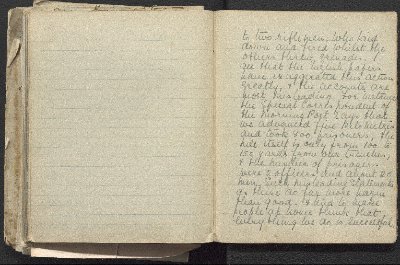 to two riflemen, who lay
down and fired whilst the
others threw grenades. I
see that the British papers
have exaggerated this action
greatly, & the accounts are
most misleading. For instance
the Special Correspondent of
the Morning Post says that
we advanced five kilometres
and took 400 prisoners; the
hill itself is only from 100 to
150 yards from our trenches,
& the number of prisoners
were 2 officers and about 20
men. Such misleading statements
as these do far more harm
than good, & lead to make
people at home think that
everything we do is successful